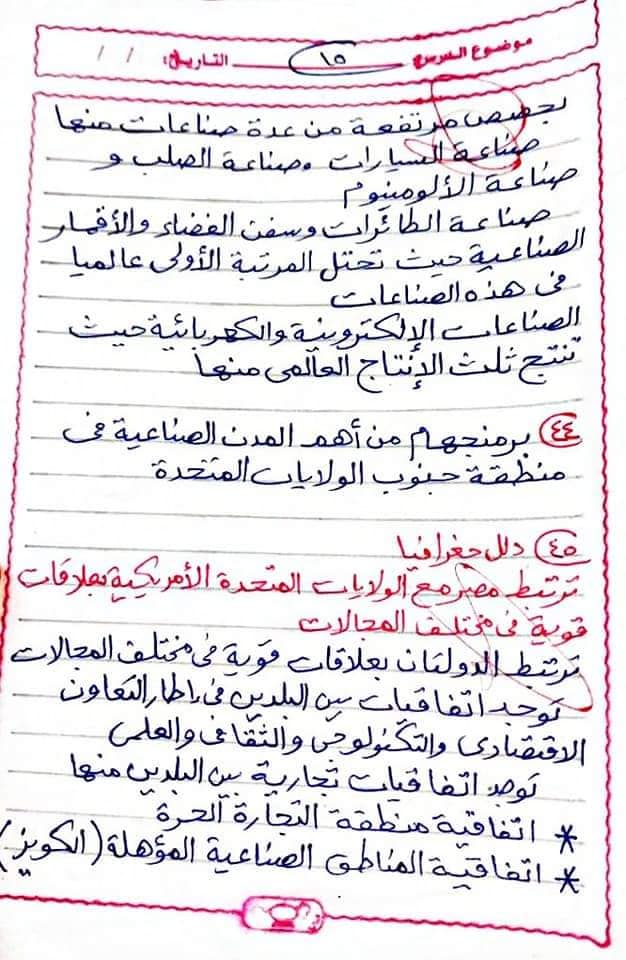 موضوع الدرس ١٥ التاريخ: / /
بحصص مرتفعة من عدة صناعات منها
صناعة السيارات وصناعة الصلب و
صناعة الألومنيوم
صناعة الطائرات وسفن الفضاء والأقمار
الصناعية حيث تحتل المرتبة الأولى عالميا
فى هذه الصناعات
الصناعات الإلكترونية والكهربائية حيث
تنتج ثلث الإنتاج العالمى منها
٤٤ برمنجهام من أهم المدن الصناعية فى
منطقة جنوب الولايات المتحدة
٤٥ دلل جغرافيا
ترتبط مصر مع الولايات المتحدة الأمريكية بعلاقات
قوية فى مختلف المجالات
ترتبط الدولتان بعلاقات قوية فى مختلف المجالات
توجد اتفاقيات بين البلدين فى إطار التعاون
الاقتصادى والتكنولوجى والثقافى والعلمى
توجد اتفاقيات تجارية بين البلدين منها
* اتفاقية منطقة التجارة الحرة
* اتفاقية المناطق الصناعية المؤهلة (الكويز)